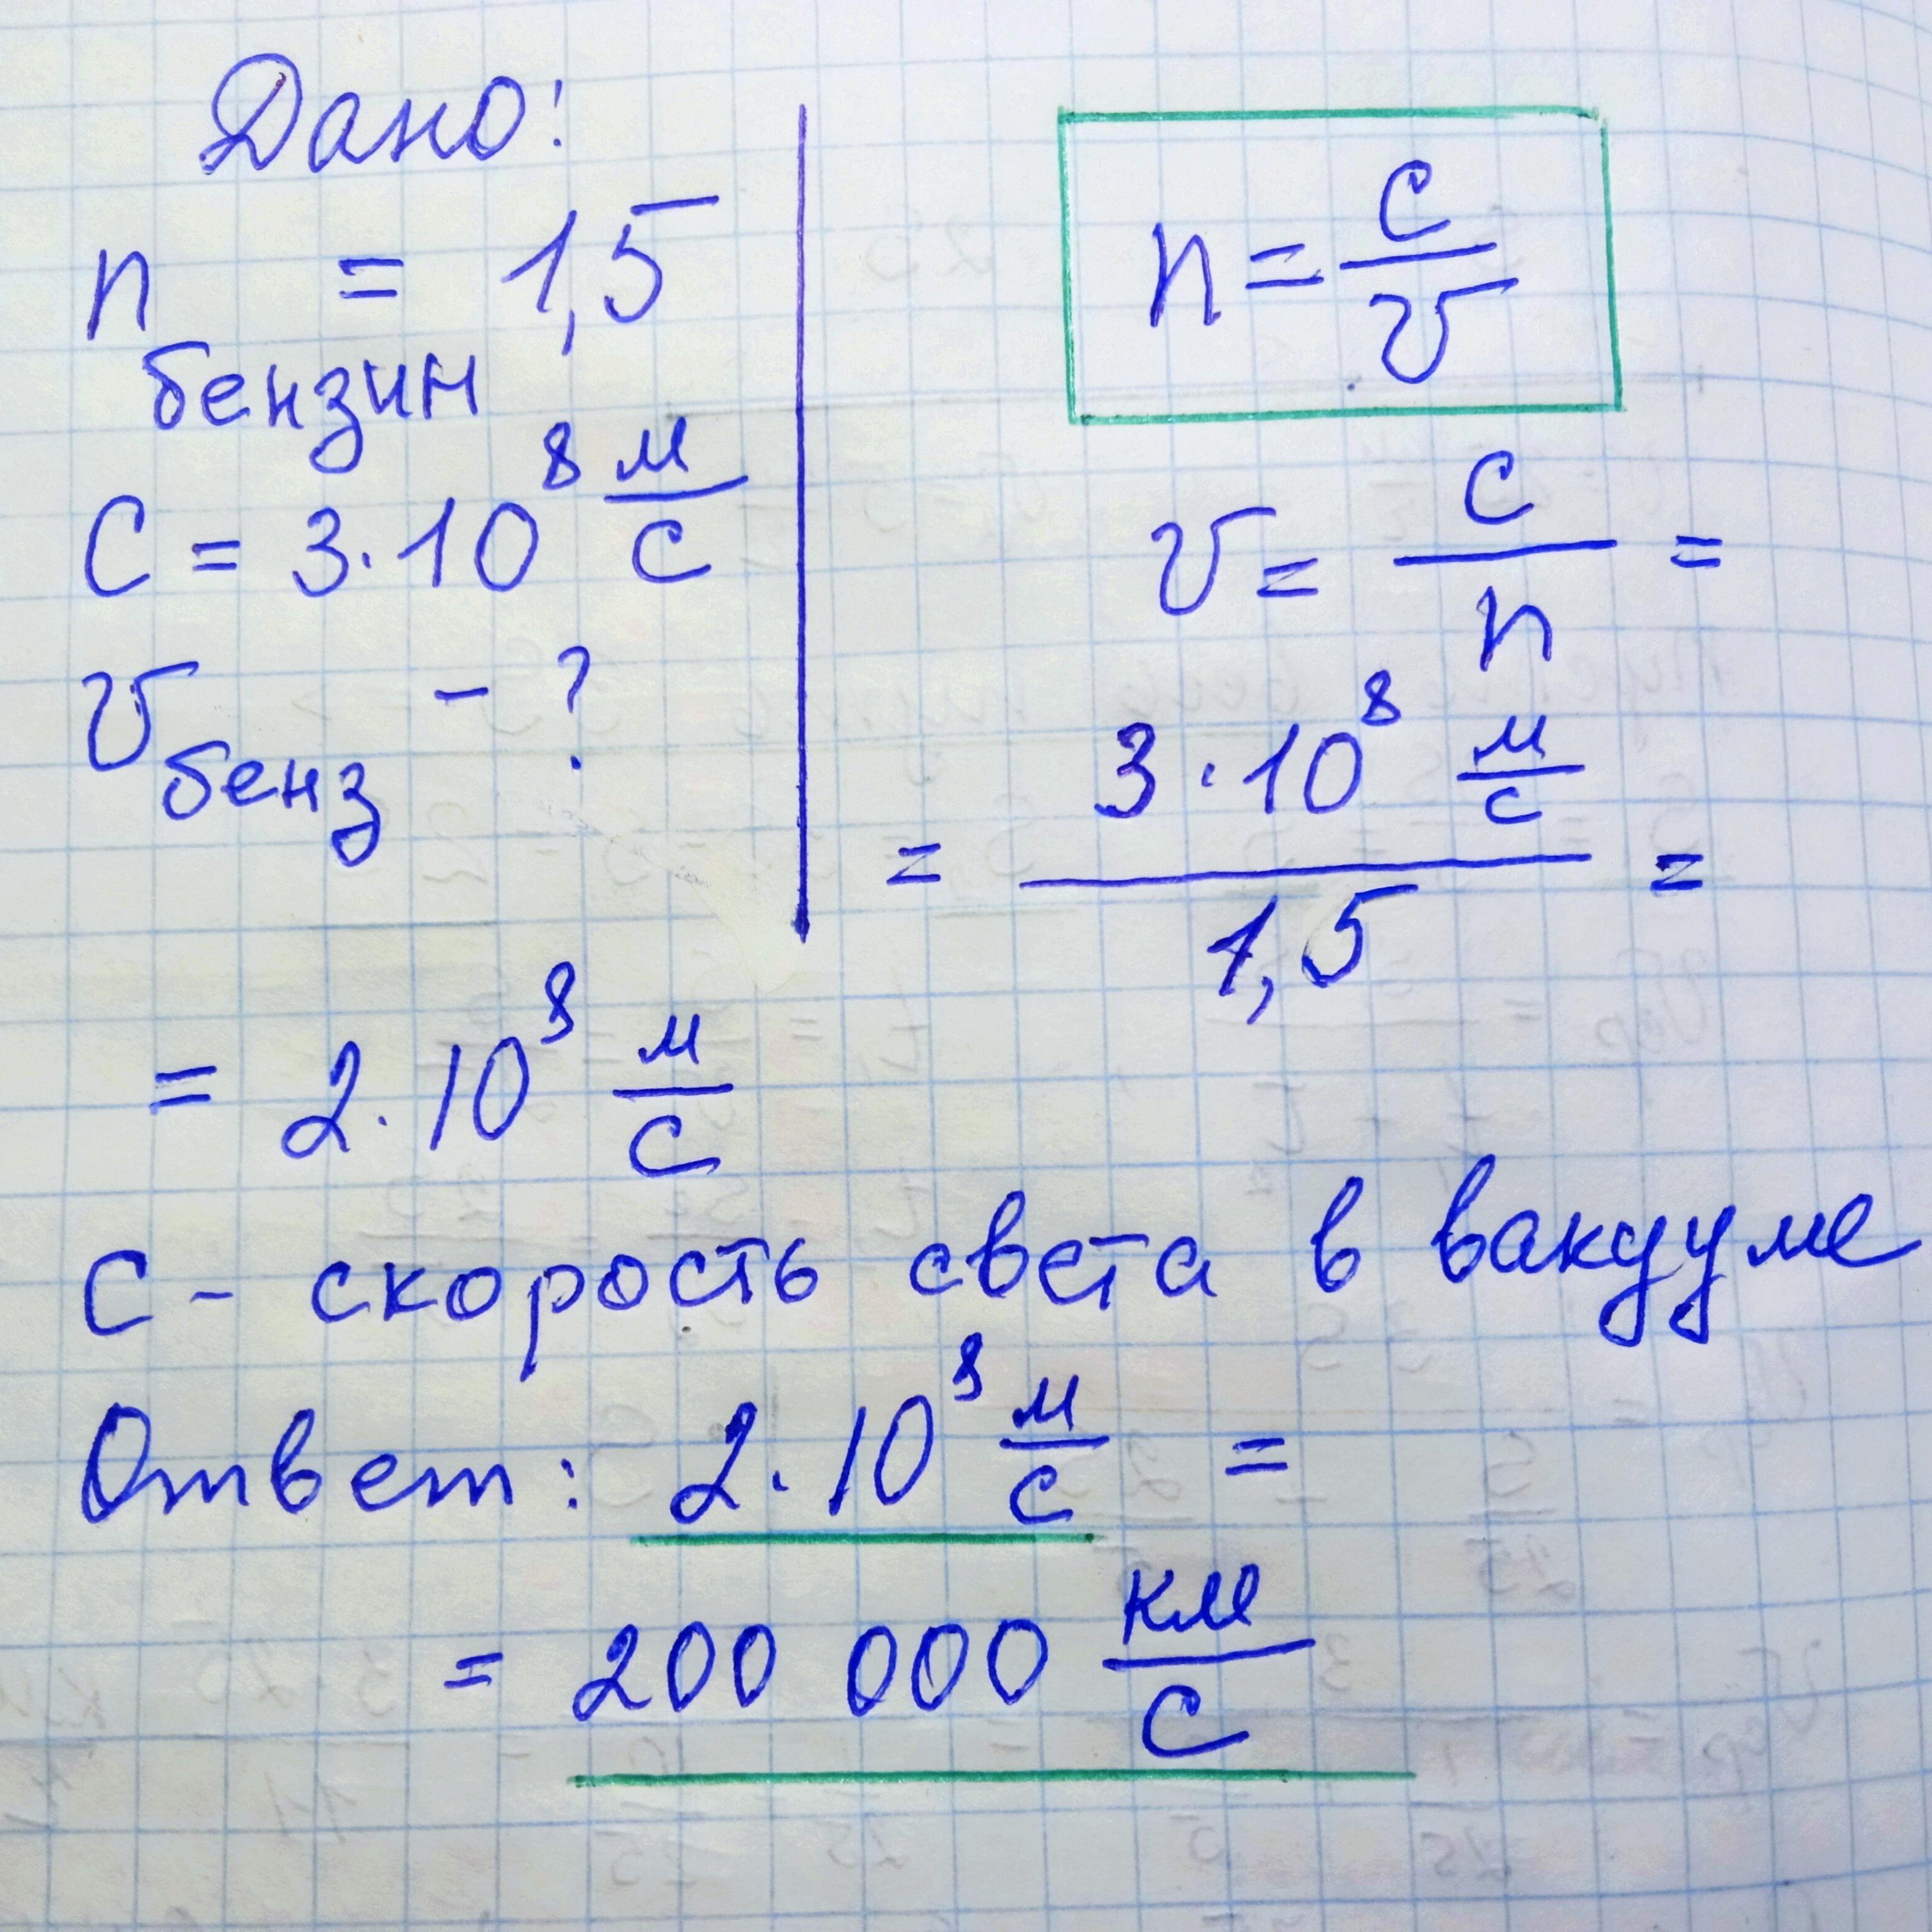 Дано:
n бензин = 1,5
C = 3·10⁸ м/с
υ бенз - ?
n = c/υ
υ = c/n =
= 3·10⁸ м/с / 1,5 =
= 2·10⁸ м/с
C - скорость света в вакууме
Ответ: 2·10⁸ м/с =
= 200 000 км/с